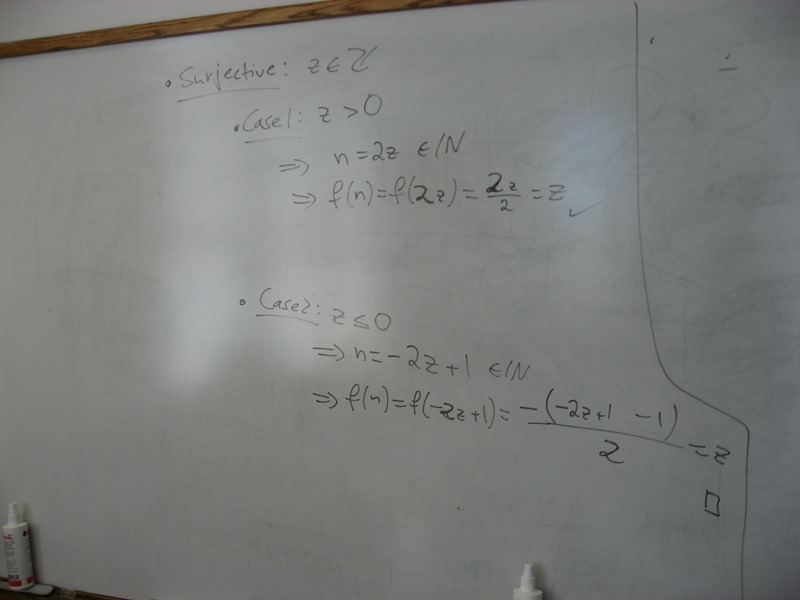 • Surjective: z ∈ ℤ
• Case1: z > 0
⇒ n = 2z ∈ ℕ
⇒ f(n) = f(2z) = 2z/2 = z ✓
• Case2: z ≤ 0
⇒ n = -2z + 1 ∈ ℕ
⇒ f(n) = f(-2z+1) = -(-2z+1 -1)/2 = z
□